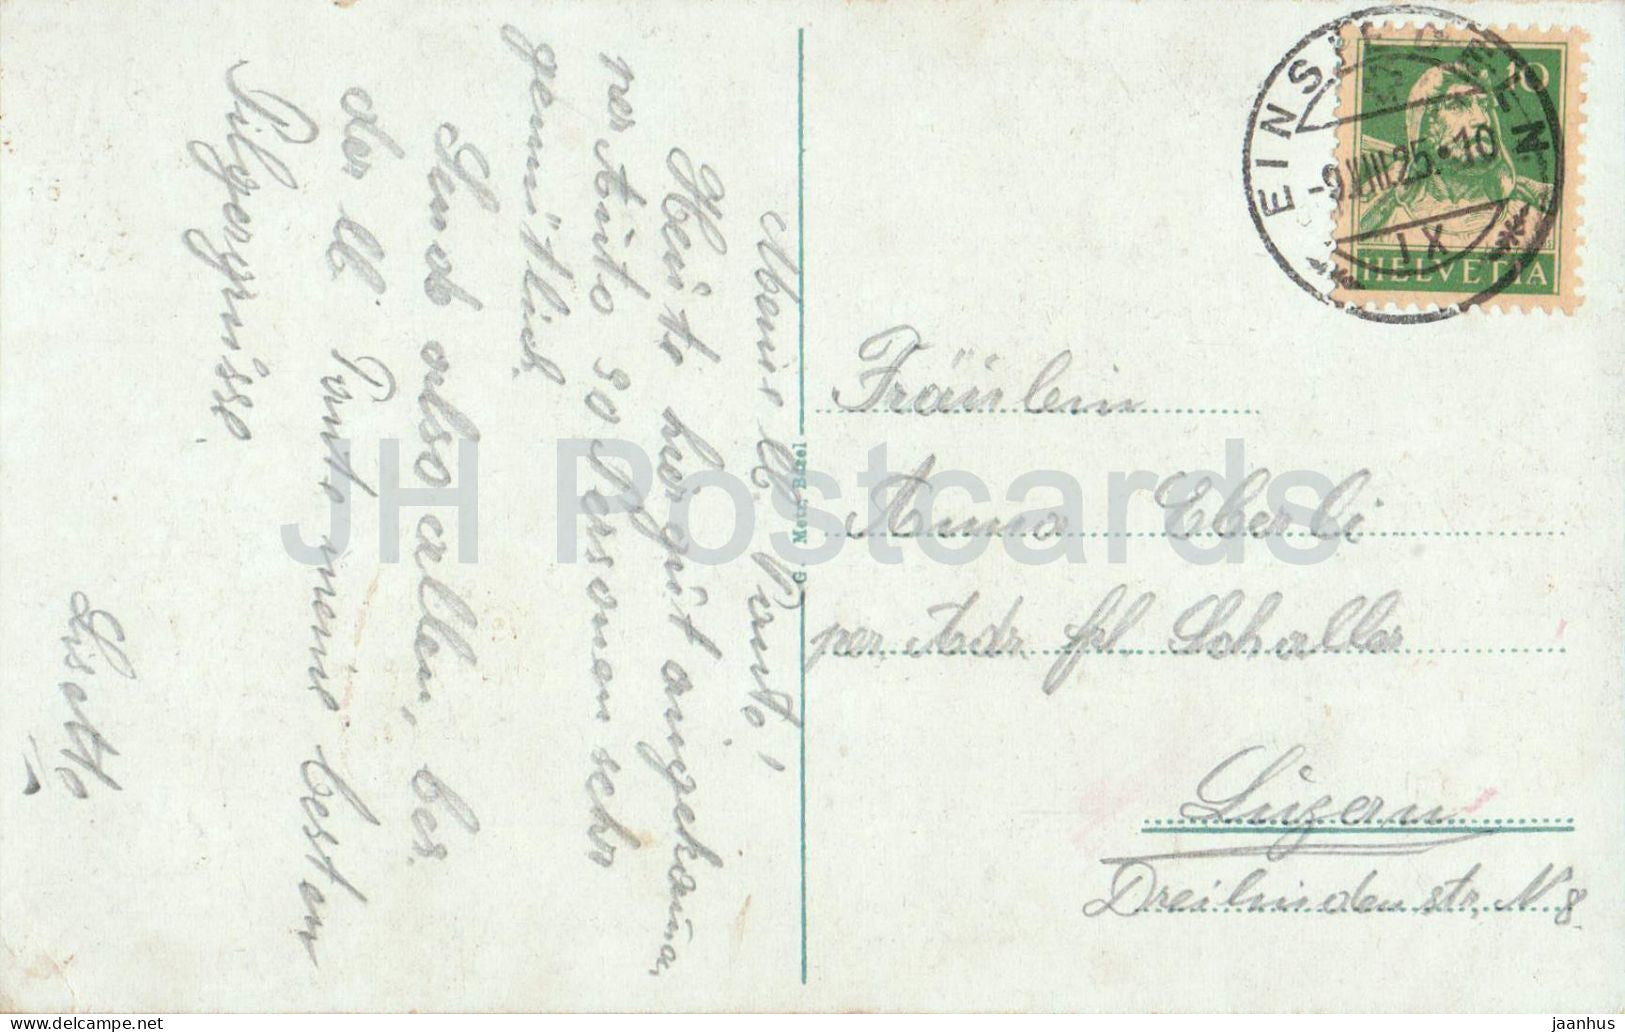 Meine lb. Tante!
Heute hier gut angekomm.
per Auto 30 Personen sehr
gemütlich.
Send also allen, bes.
der lb. Tante meine besten
Pilgergrüsse.
Lisette
G. Metz, Basel
EINSIEDELN
-9.VIII.25.10
IX
10
HELVETIA
Fräulein
Anna Eberli
per Adr. frl. Schaller
Luzern
Dreilindenstr, N 8.
JH Postcards
https://www.delcampe.net
jaanhus